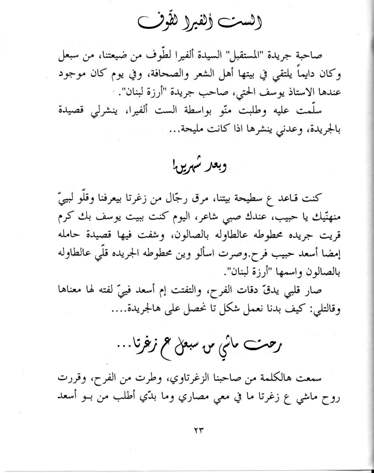 الست ألفيرا لطّوف
صاحبة جريدة "المستقبل" السيدة ألفيرا لطّوف من ضيعتنا، من سبعل
وكان دايماً يلتقي في بيتها أهل الشعر والصحافة، وفي يوم كان موجود
عندها الاستاذ يوسف الحتي، صاحب جريدة "أرزة لبنان".
سلّمت عليه وطلبت منّو بواسطة الست ألفيرا، ينشرلي قصيدة
بالجريدة، وعدني ينشرها اذا كانت مليحة...
وبعد شهرين!
كنت قاعد ع سطيحة بيتنا، مرق رجّال من زغرتا بيعرفنا وقلّو لبييّ
منهنّيك يا حبيب، عندك صبي شاعر، اليوم كنت ببيت يوسف بك كرم
قريت جريده محطوطه عالطاوله بالصالون، وشفت فيها قصيدة حامله
إمضا أسعد حبيب فرح.وصرت اسألو وين محطوطه الجريده قلّي عالطاوله
بالصالون واسمها "أرزة لبنان".
صار قلبي يدقّ دقات الفرح، والتفتت إم أسعد فييّ لفته لها معناها
وقالتلي: كيف بدنا نعمل شكل تا نحصل على هالجريدة....
رحت ماشي من سبعل ع زغرتا...
سمعت هالكلمة من صاحبنا الزغرتاوي، وطرت من الفرح، وقررت
روح ماشي ع زغرتا ما في معي مصاري وما بدّي أطلب من بو أسعد
٢٣